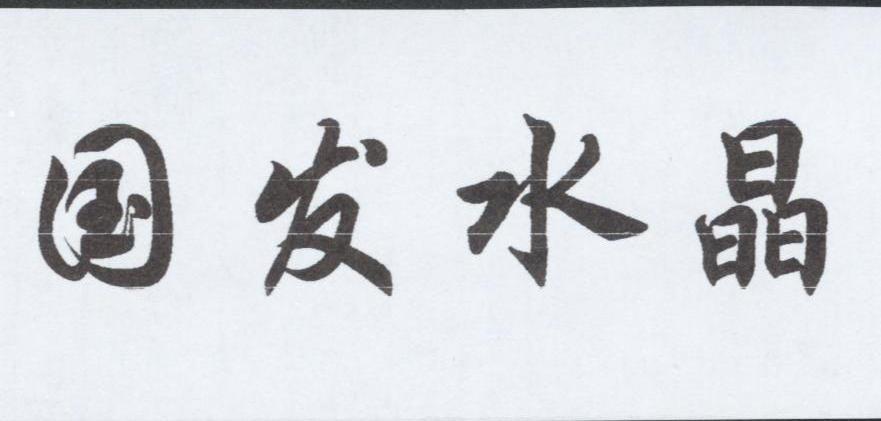 国发水晶